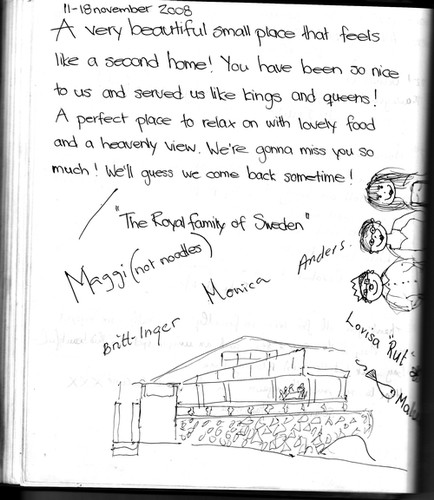 11-18 november 2008
A very beautiful small place that feels
like a second home! You have been so nice
to us and served us like kings and queens!
A perfect place to relax on with lovely food
and a heavenly view. We're gonna miss you so
much! We'll guess we come back sometime!
"The Royal family of Sweden"
Maggi (not noodles)
Monica
Anders.
Britt-Inger
Lovisa "Rut"